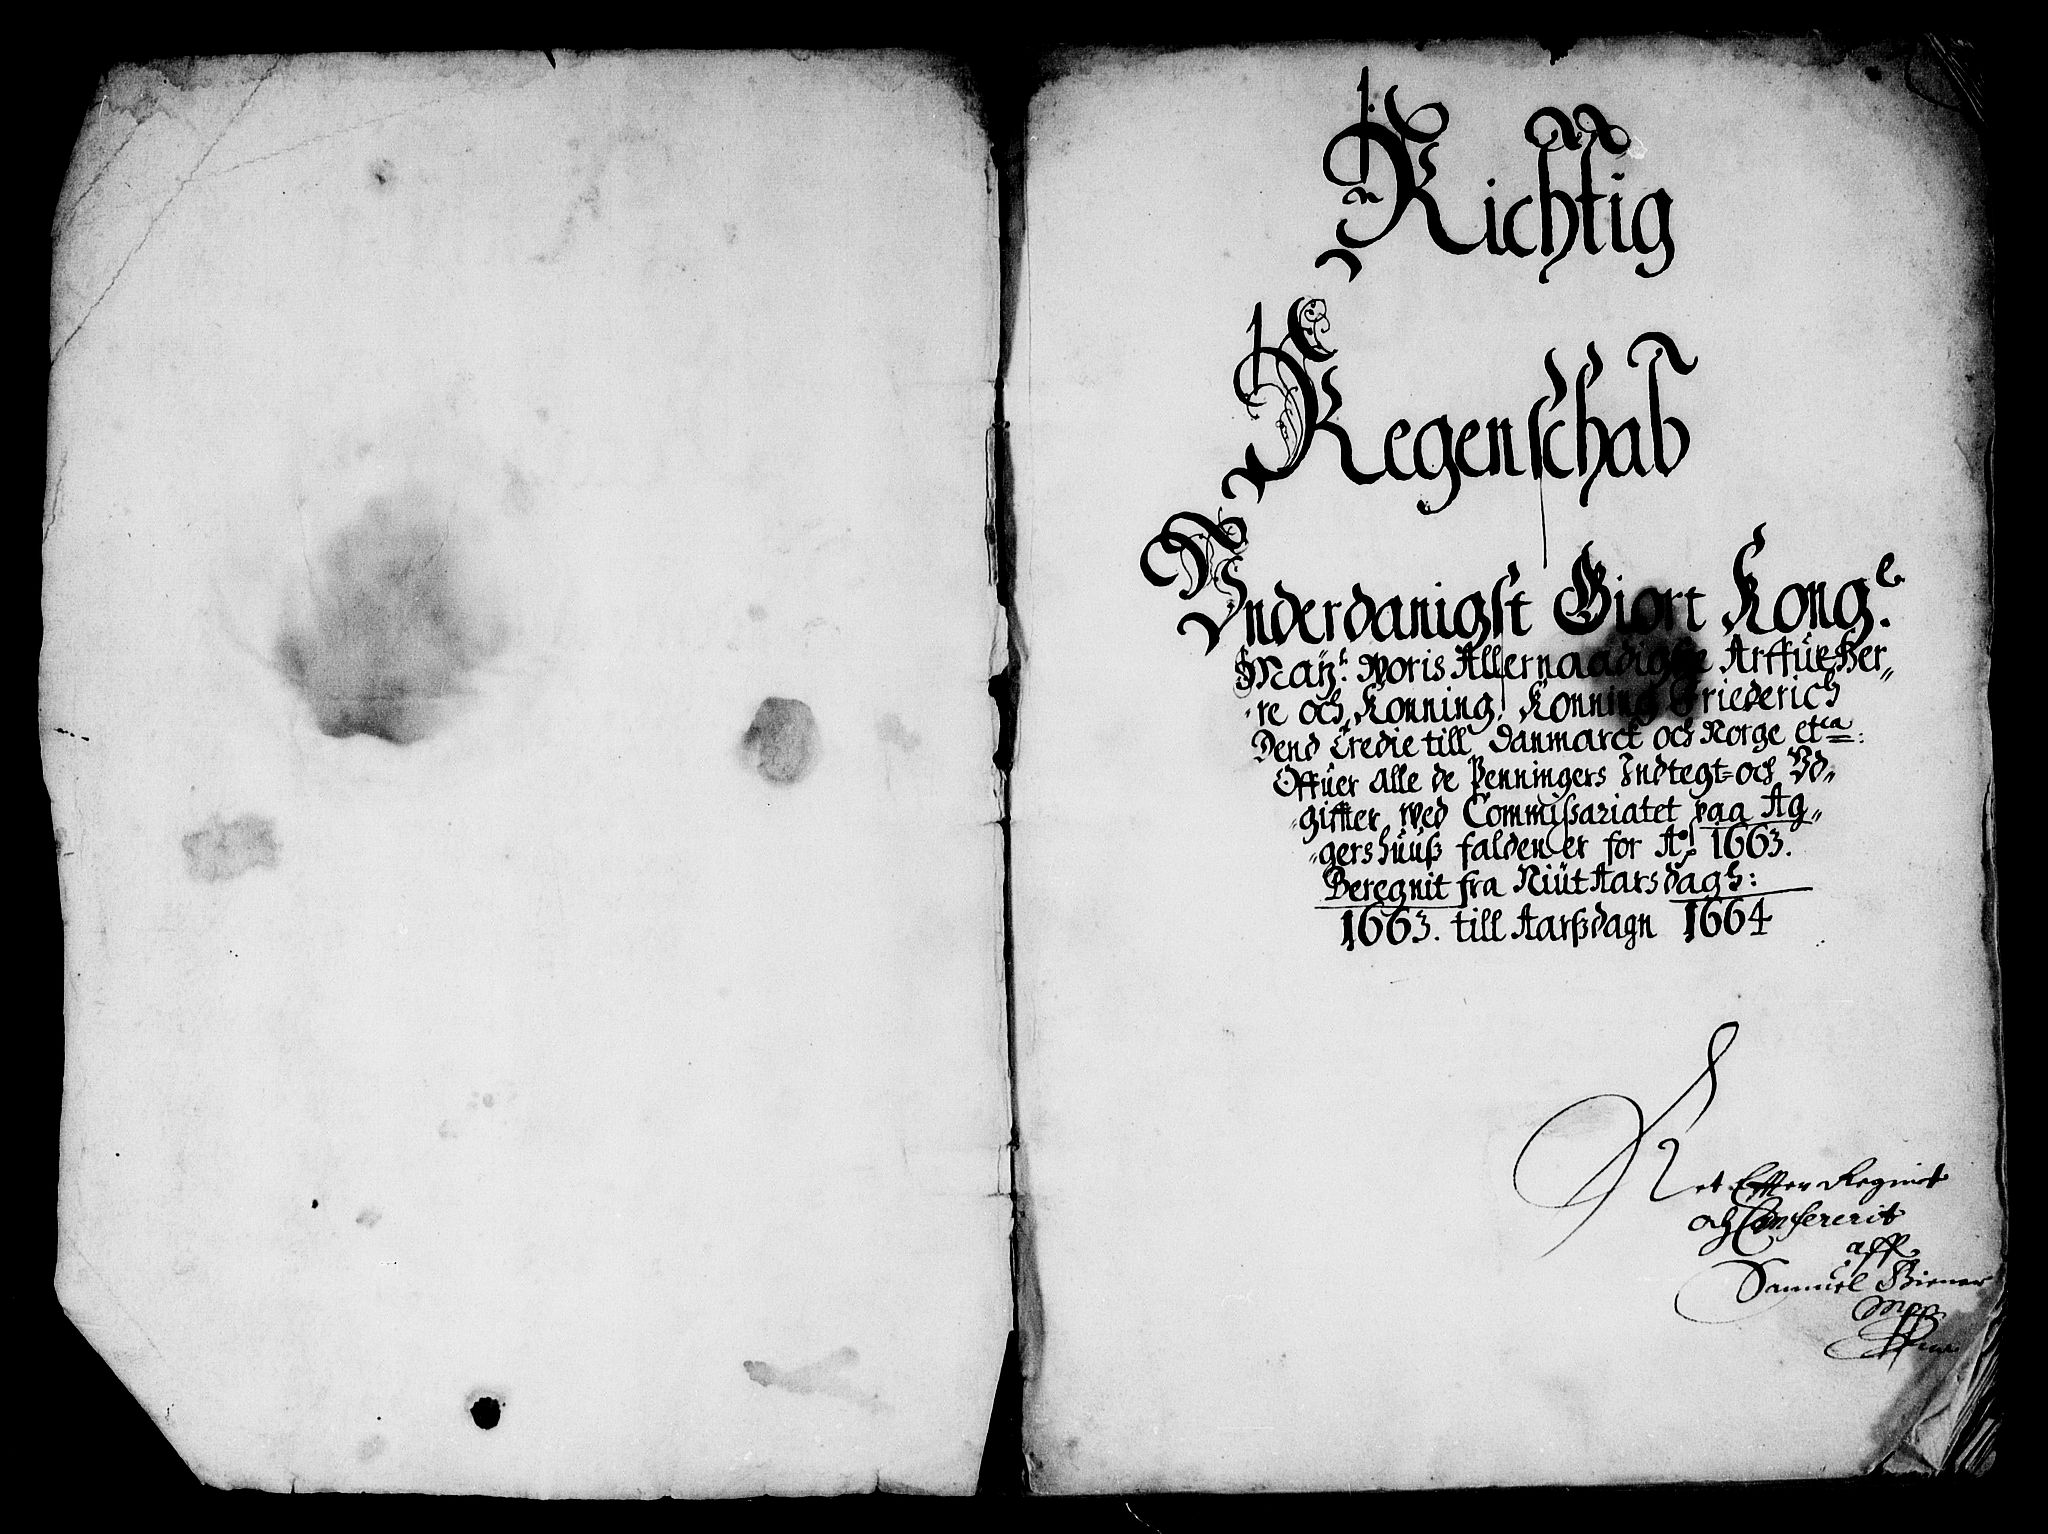 Richtig
Regenschab
Vnderdanigst Giort Kong.e
May.s Woris Allernaadigste Arffue Her„
„re och Konning. Konning Friederich
Dend Tredie till Danmarck och Norge etca:
Offuer Alle de Penningers Indtegt- och Vd„
„giffter wed Commissariatet paa Ag„
„gershuuß falden er for Ao. 1663.
Beregnit fra Niüt Aarsdagh:
1663. till Aarßdagn 1664
Ret Effter Regnet
och Confererit
aff
Samuel
Mpp